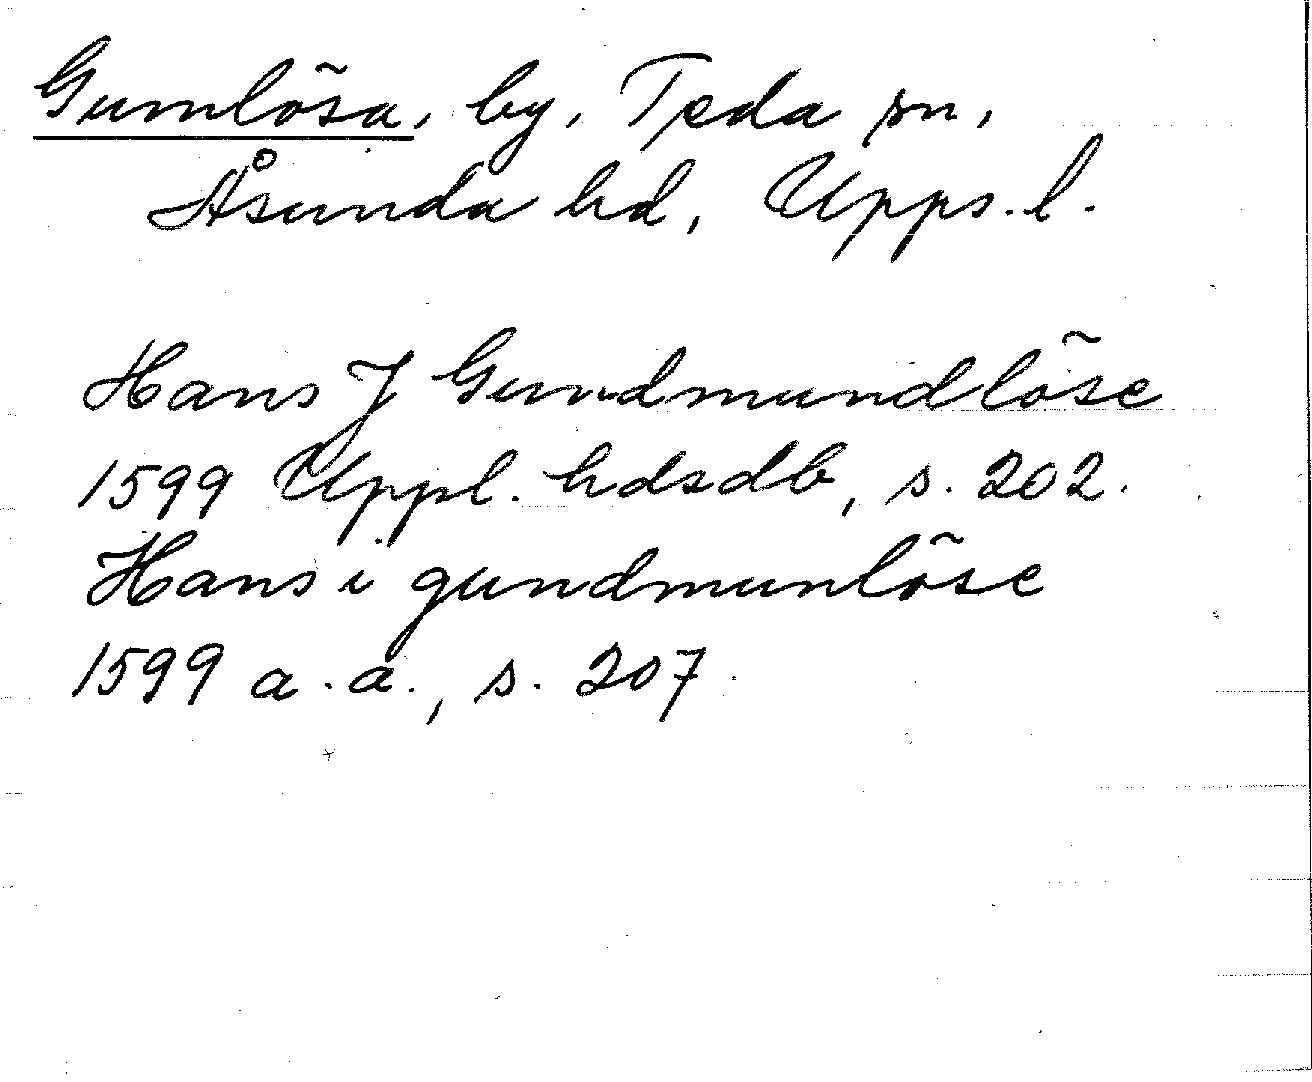 Gumlösa, by, Teda sn,
Åsunda hd, Upps. l.
Hans J Gundmundlöse
1599 Uppl. hdsdb, s. 202.
Hans i gundmunlöse
1599 a. a., s. 207.